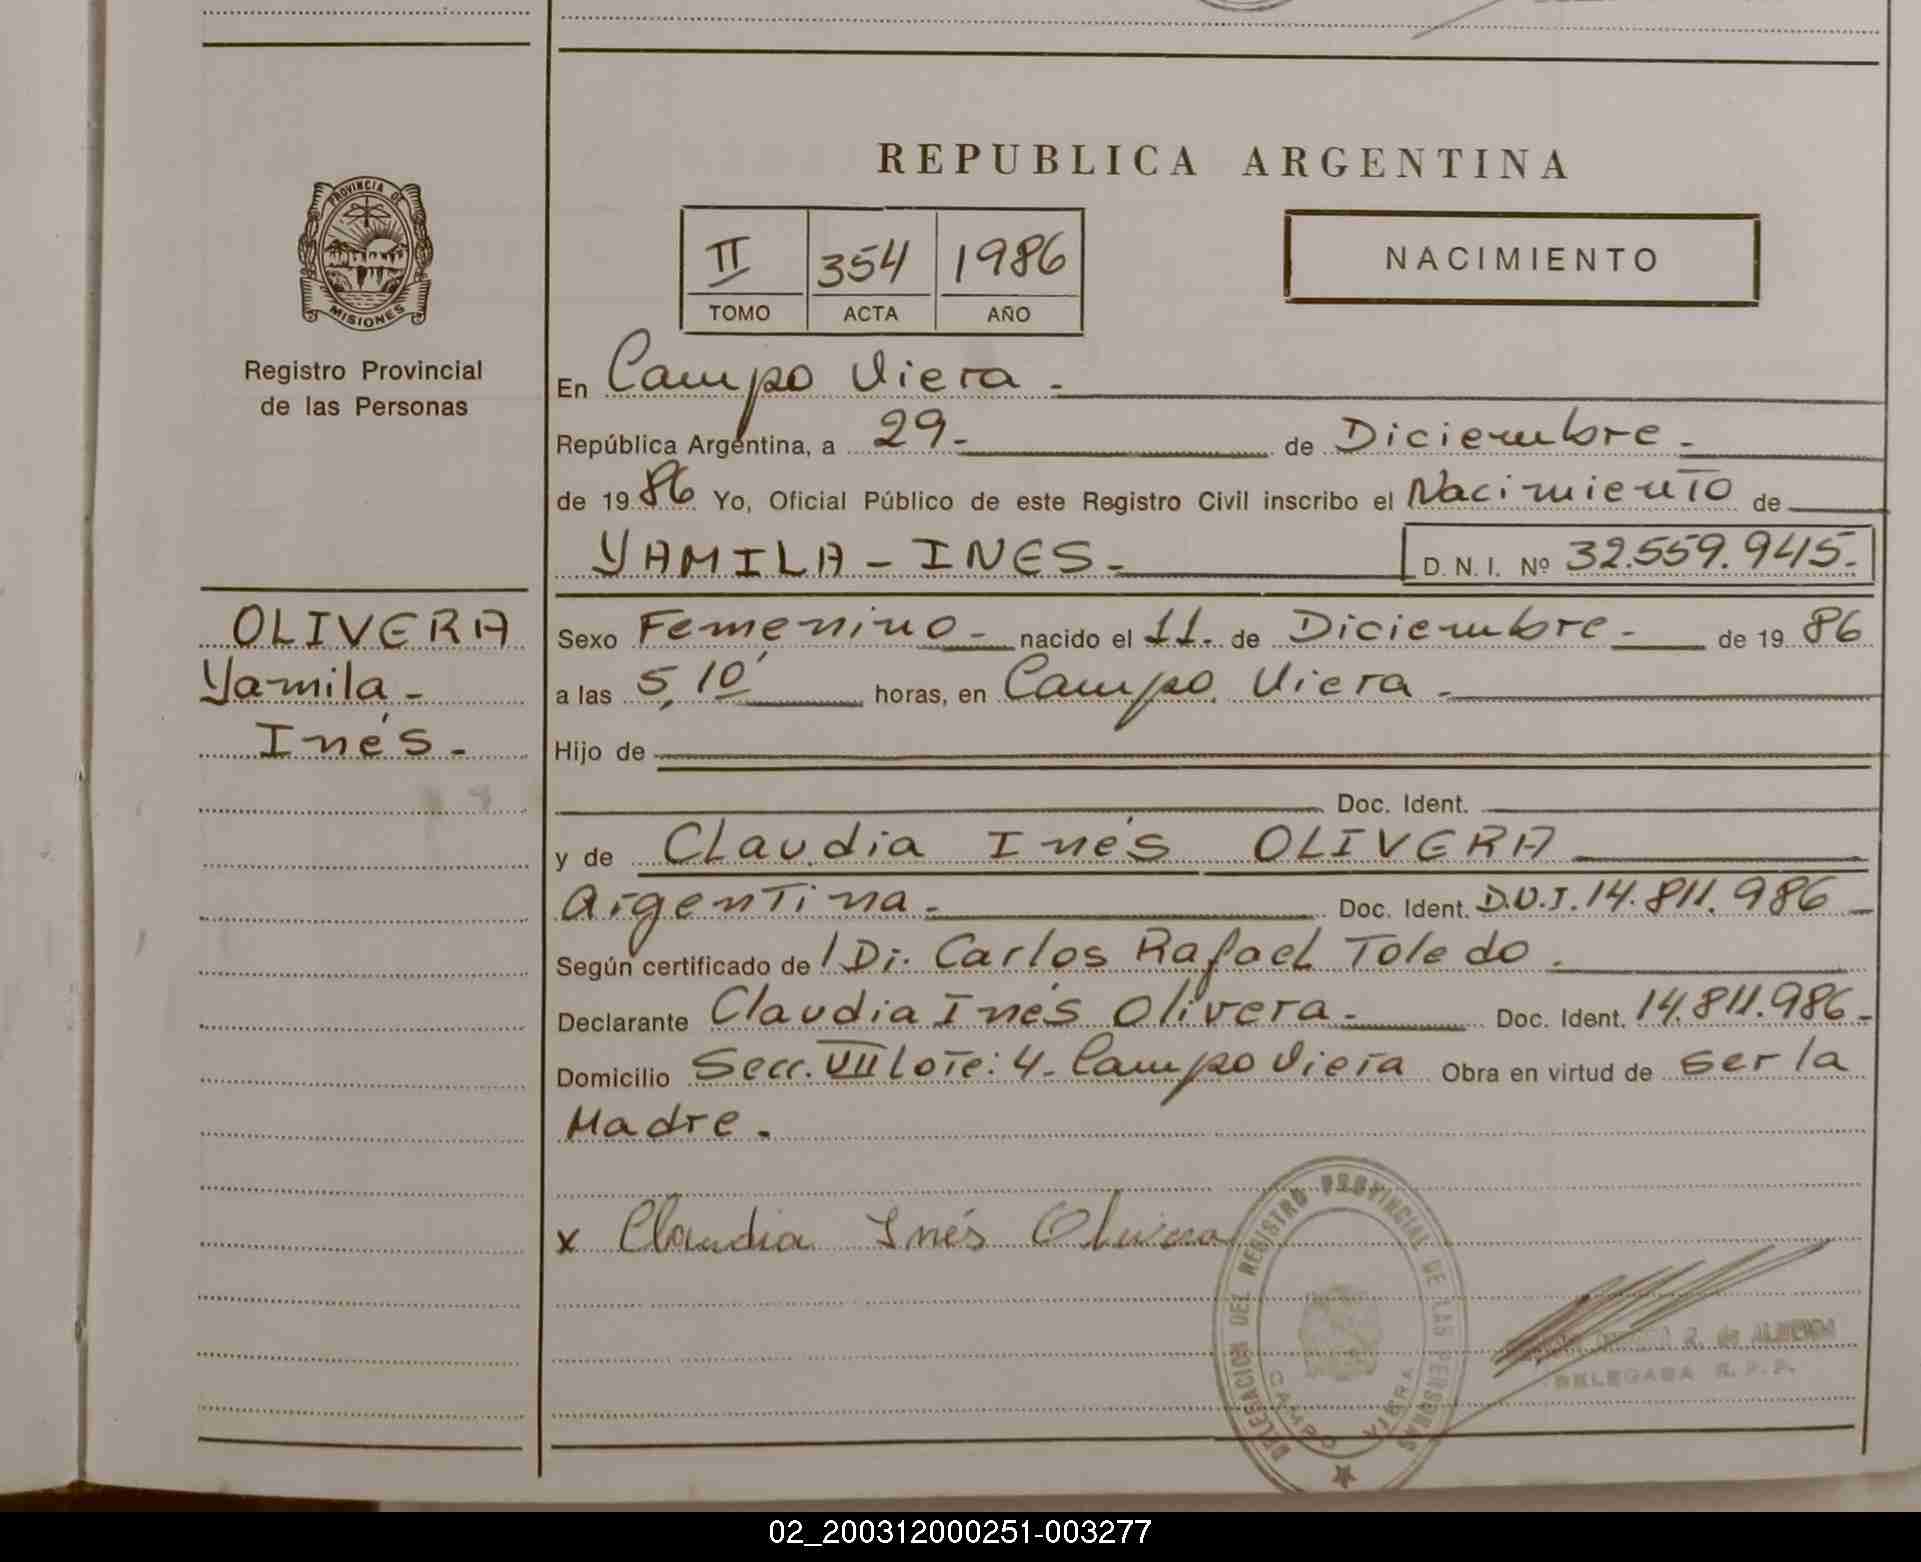 REPUBLICA ARGENTINA
PROVINCIA DE
MISIONES
Registro Provincial
de las Personas
II 354 1986
TOMO ACTA AÑO
NACIMIENTO
En Campo Viera.-
República Argentina, a 29.- de Diciembre.-
de 1986 Yo, Oficial Público de este Registro Civil inscribo el Nacimiento de
YAMILA - INES.- D. N. I. Nº 32.559.945.-
OLIVERA
Yamila -
Inés.-
Sexo Femenino.- nacido el 11.- de Diciembre.- de 1986
a las 5,10' horas, en Campo Viera.-
Hijo de
Doc. Ident.
y de Claudia Inés OLIVERA
Argentina.- Doc. Ident. D.N.I. 14.811.986
Según certificado de / Dr. Carlos Rafael Toledo.
Declarante Claudia Inés Olivera.- Doc. Ident. 14.811.986.-
Domicilio Secc. VII Lote: 4- Campo Viera Obra en virtud de ser la
Madre.-
x Claudia Inés Olivera
DELEGACION DEL REGISTRO PROVINCIAL DE LAS PERSONAS
CAMPO VIERA
R. de ALMEIDA
DELEGADA R. P. P.
02_200312000251-003277